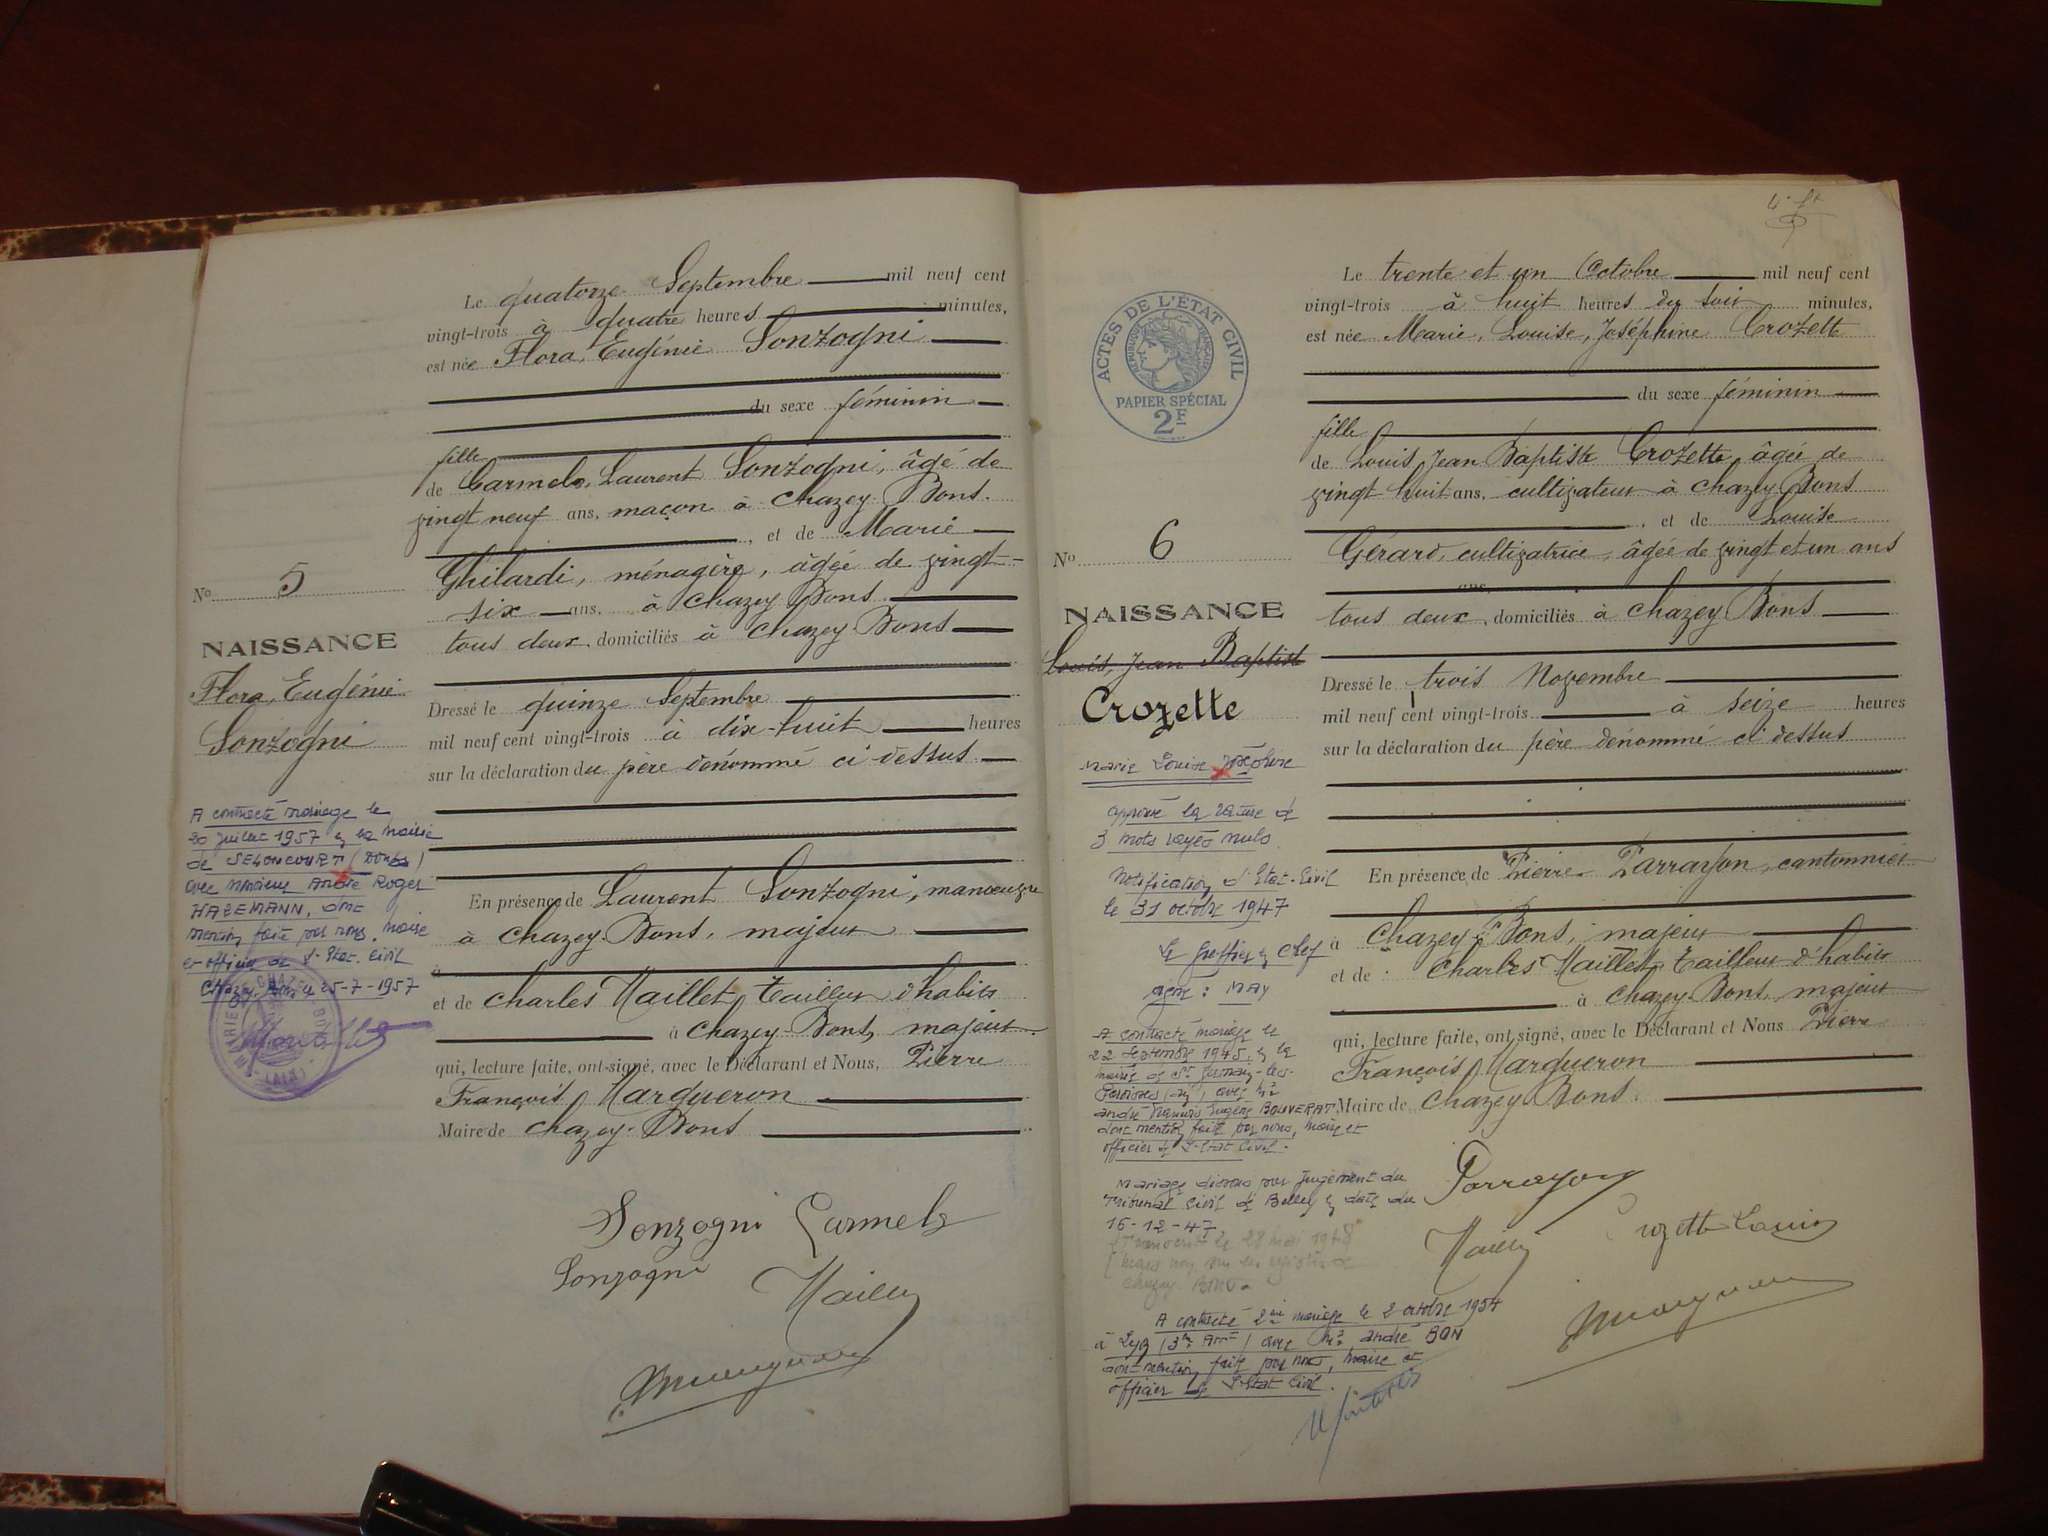 Le quatorze Septembre mil neuf cent
vingt-trois à quatre heures minutes,
est née Flora, Eugénie Sonzogni
du sexe féminin
fille
de Carmelo, Laurent Sonzogni, âgé de
vingt neuf ans, maçon à Chazey-Bons
, et de Marie
Ghilardi, ménagère, âgée de vingt-
six ans, à Chazey Bons
tous deux, domiciliés à Chazey-Bons
Dressé le quinze Septembre
mil neuf cent vingt-trois à dix-huit heures
sur la déclaration du père dénommé ci dessus
En présence de Laurent Sonzogni, manoeuvre
à Chazey-Bons, majeur
et de Charles Maillet, tailleur d'habits
à Chazey-Bons, majeur
qui, lecture faite, ont signé, avec le Déclarant et Nous, Pierre
François Margueron
Maire de Chazey-Bons
Sonzogni Carmelo
Sonzogni
No 5
NAISSANCE
Flora, Eugénie
Sonzogni
A contracté mariage le
20 juillet 1957 à la Mairie
de SELONCOURT (Doubs)
avec Monsieur André Roger
HAZEMANN, dont
mention faite par nous, Maire
et officier de l'Etat-Civil
Chazey-Bons le 25-7-1957
Le trente et un Octobre mil neuf cent
vingt-trois à huit heures du soir minutes,
est née Marie, Louise, Joséphine Crozette
du sexe féminin
fille
de Louis, Jean Baptiste Crozette, âgé de
vingt huit ans, cultivateur à Chazey Bons
, et de Louise
Gérard, cultivatrice, âgée de vingt et un ans
ans,
tous deux, domiciliés à Chazey Bons
Dressé le trois Novembre
mil neuf cent vingt-trois à seize heures
sur la déclaration du père dénommé ci dessus
En présence de Pierre Parrayon, cantonnier
à Chazey-Bons, majeur
et de : Charles Maillet, tailleur d'habits
à Chazey-Bons, majeur
qui, lecture faite, ont signé, avec le Déclarant et Nous Pierre
François Margueron
Maire de Chazey Bons
Parrayon
Crozette Louis
ACTES DE L'ÉTAT CIVIL
RÉPUBLIQUE FRANÇAISE
PAPIER SPÉCIAL
2F
No 6
NAISSANCE
Louis, Jean Baptiste
Crozette
Marie Louise Joséphine
approuvé la rature de
3 mots rayés nuls
Notification d'Etat-Civil
le 31 octobre 1947
Le greffier en chef
signé : MAY
A contracté mariage le
22 septembre 1945, à la
mairie de St Germain-les-
Paroisses (Ain), avec Mr
André François Eugène BOUVERAT,
dont mention faite par nous, Maire et
officier de l'Etat Civil.
Mariage dissous par jugement du
Tribunal Civil de Belley en date du
16-12-47
Transcrit le 28 mai 1948
Chazey-Bons
A contracté 2ème mariage le 2 octobre 1954
à Lyon (3e Arrt) avec Mr André BON
dont mention faite par nous, Maire et
officier de l'Etat Civil.